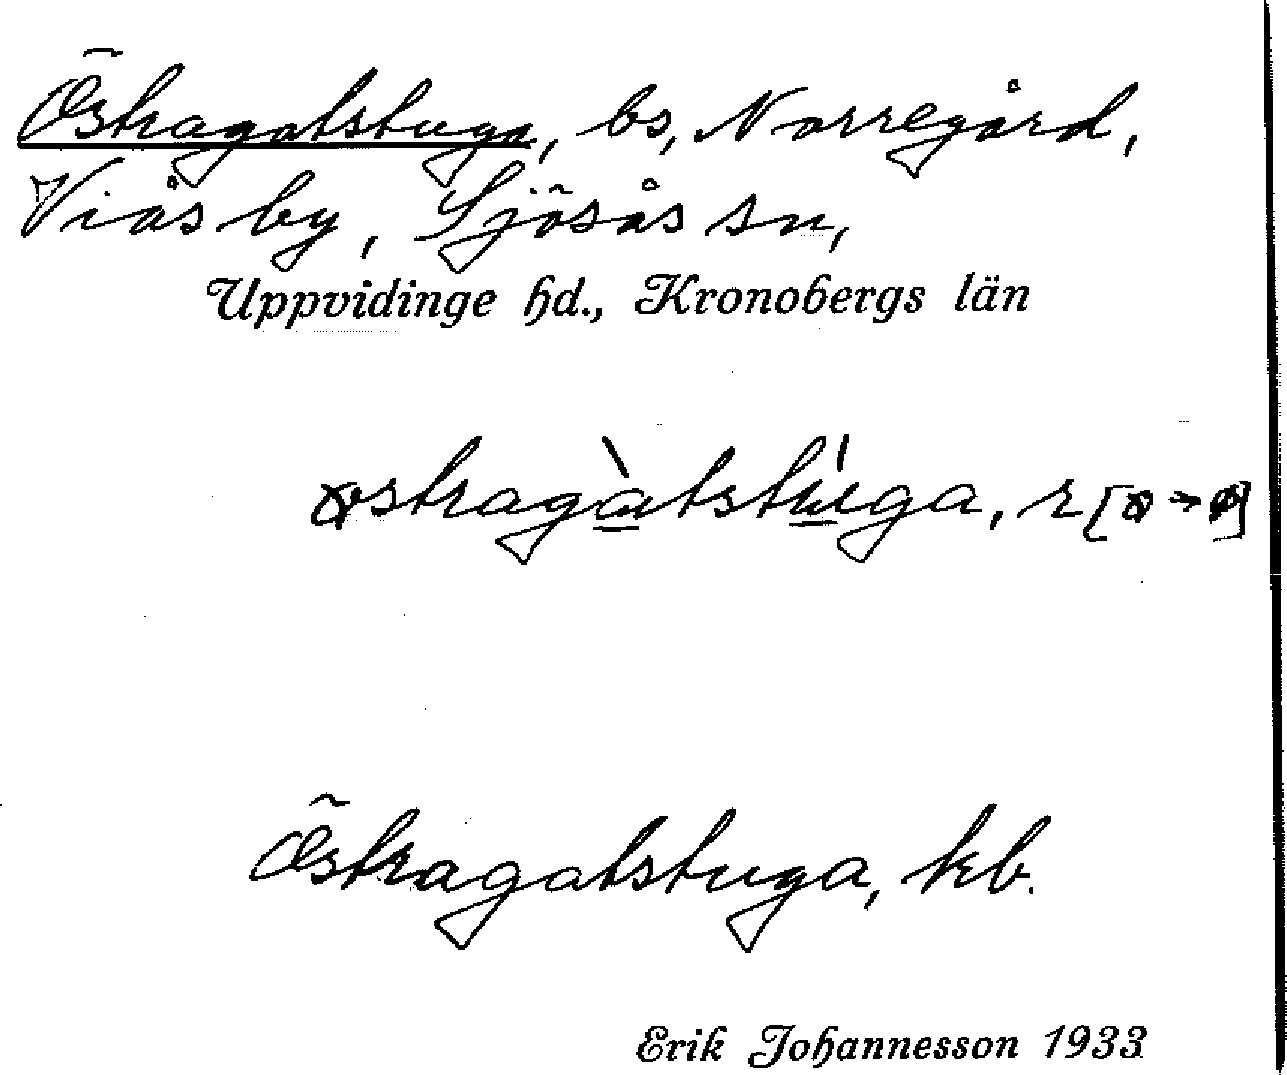 Östragatstuga, bs, Norregård,
Viås by, Sjösås sn,
Uppvidinge hd., Kronobergs län
østragàtstúga, r [ø → ø]
Östragatstuga, kb.
Erik Johannesson 1933